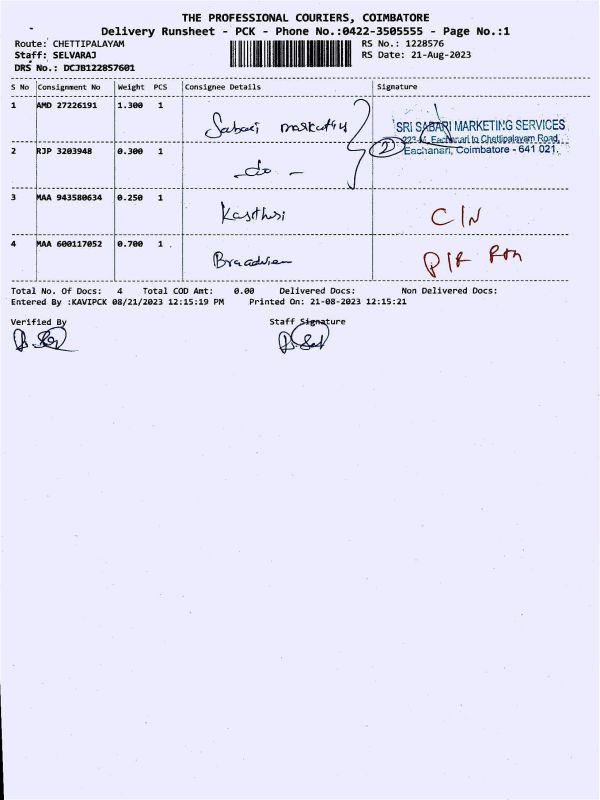 THE PROFESSIONAL COURIERS, COIMBATORE
Delivery Runsheet - PCK - Phone No.:0422-3505555 - Page No.:1
Route: CHETTIPALAYAM RS No.: 1228576
Staff: SELVARAJ RS Date: 21-Aug-2023
DRS No.: DCJB122857601
S No Consignment No Weight PCS Consignee Details Signature
1 AMD 27226191 1.300 1 Sabari marketing
SRI SABARI MARKETING SERVICES
Eachanari to Chettipalayam Road,
2 RJP 3203948 0.300 1 - do - 2 Eachanari, Coimbatore - 641 021.
3 MAA 943580634 0.250 1 Kasthuri C/N
4 MAA 600117052 0.700 1
Total No. Of Docs: 4 Total COD Amt: 0.00 Delivered Docs: Non Delivered Docs:
Entered By :KAVIPCK 08/21/2023 12:15:19 PM Printed On: 21-08-2023 12:15:21
Verified By Staff Signature